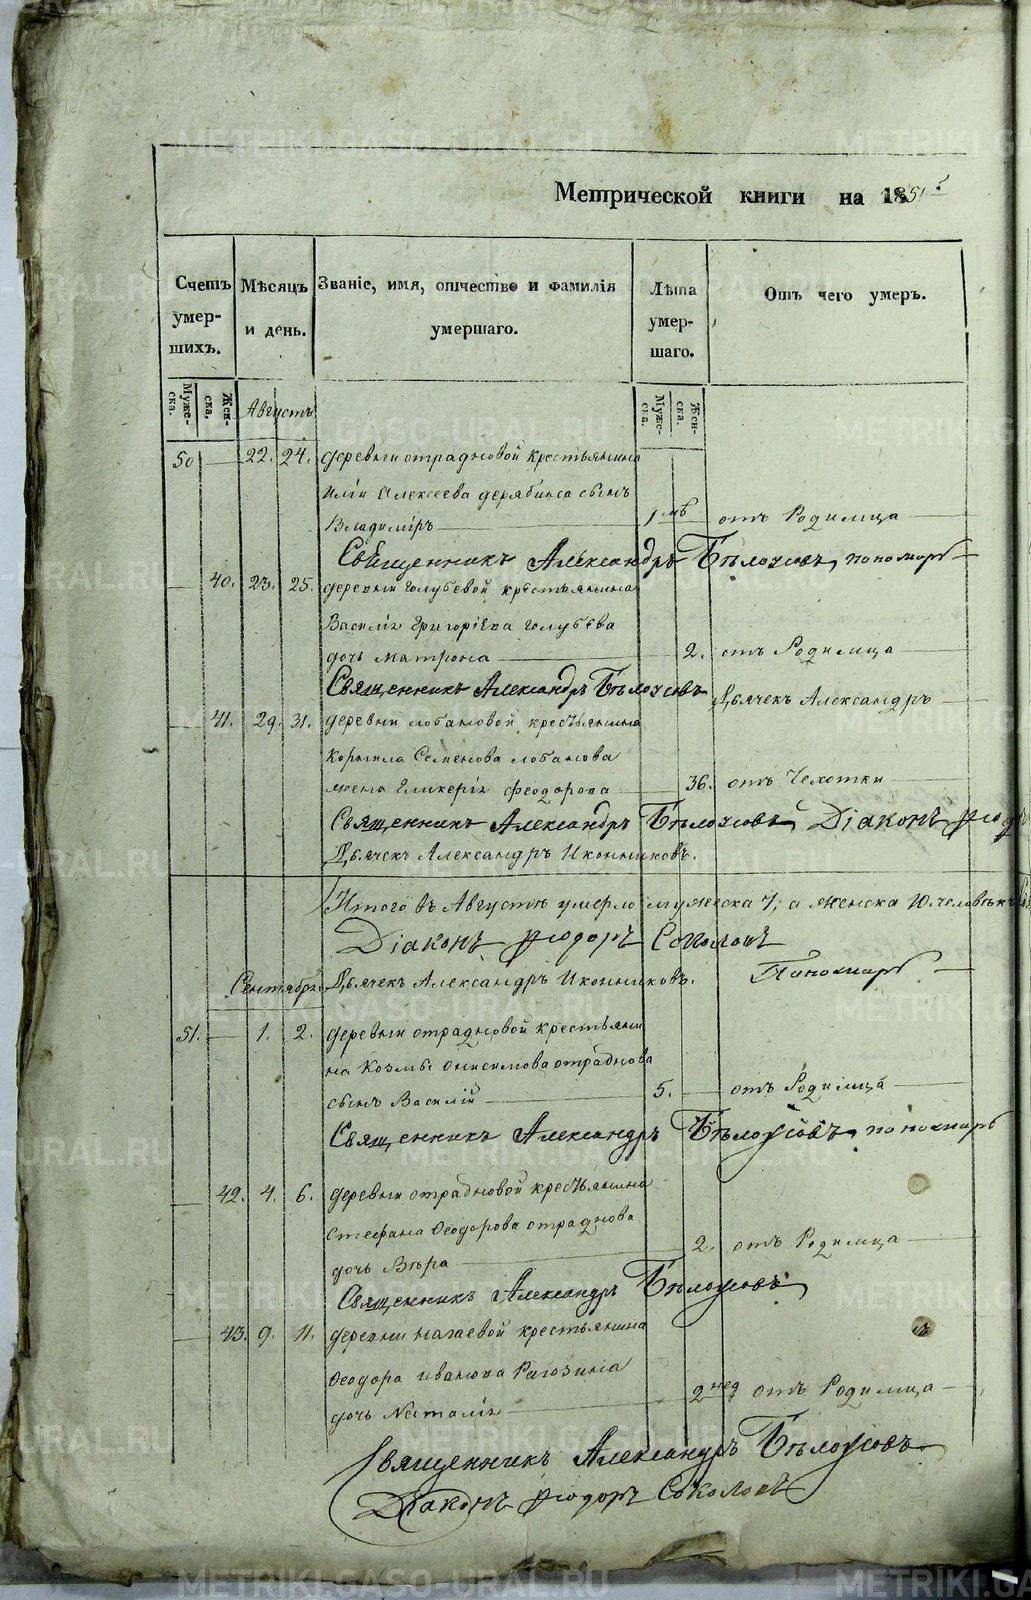 Метрической книги на 1851 г.
Счетъ умершихъ.
Мѣсяцъ и день.
Званіе, имя, отчество и фамилія умершаго.
Лѣта умершаго.
Отъ чего умеръ.
Мужеска.
Женска.
Августъ
Мужеска.
Женска.
50 22. 24. деревни отрадновой крестьянина
Иліи Алексеева дерябина сынъ
Владиміръ 1 мѣ отъ Родимца
Священникъ Александръ Бѣлоусовъ, пономарь
40. 23. 25. деревни голубевой крестьянина
Василія Григоріева голубева
дочь матрона 2. отъ Родимца
Священникъ Александръ Бѣлоусовъ Дьячекъ Александръ
41. 29. 31. деревни лобановой крестьянина
Корнила Семенова лобанова
жена Гликерія феодорова 36. отъ Чехотки
Священникъ Александръ Бѣлоусовъ Діаконъ Ѳеодръ
Дьячекъ Александръ Иконниковъ.
Итого въ Августѣ умерло мужеска 7, а женска 10. человѣкъ
Діаконъ Ѳеодоръ Соколовъ
Сентябрь Дьячекъ Александръ Иконниковъ. Пономарь
51. 1. 2. деревни отрадновой крестьяни
на Козмы Онисимова отраднова
сынъ Василій 5. отъ Родимца
Священникъ Александръ Бѣлоусовъ, пономарь
42. 4. 6. деревни отрадновой крестьянина
Стефана Ѳеодорова отраднова
дочь Вѣра 2. отъ Родимца
Священникъ Александръ Бѣлоусовъ
43. 9. 11. деревни нагаевой крестьянина
Ѳеодора иванова Рагозина
дочь Наталія 2 нед отъ Родимца
Священникъ Александръ Бѣлоусовъ
Діаконъ Ѳеодоръ Соколовъ
METRIKI.GASO-URAL.RU